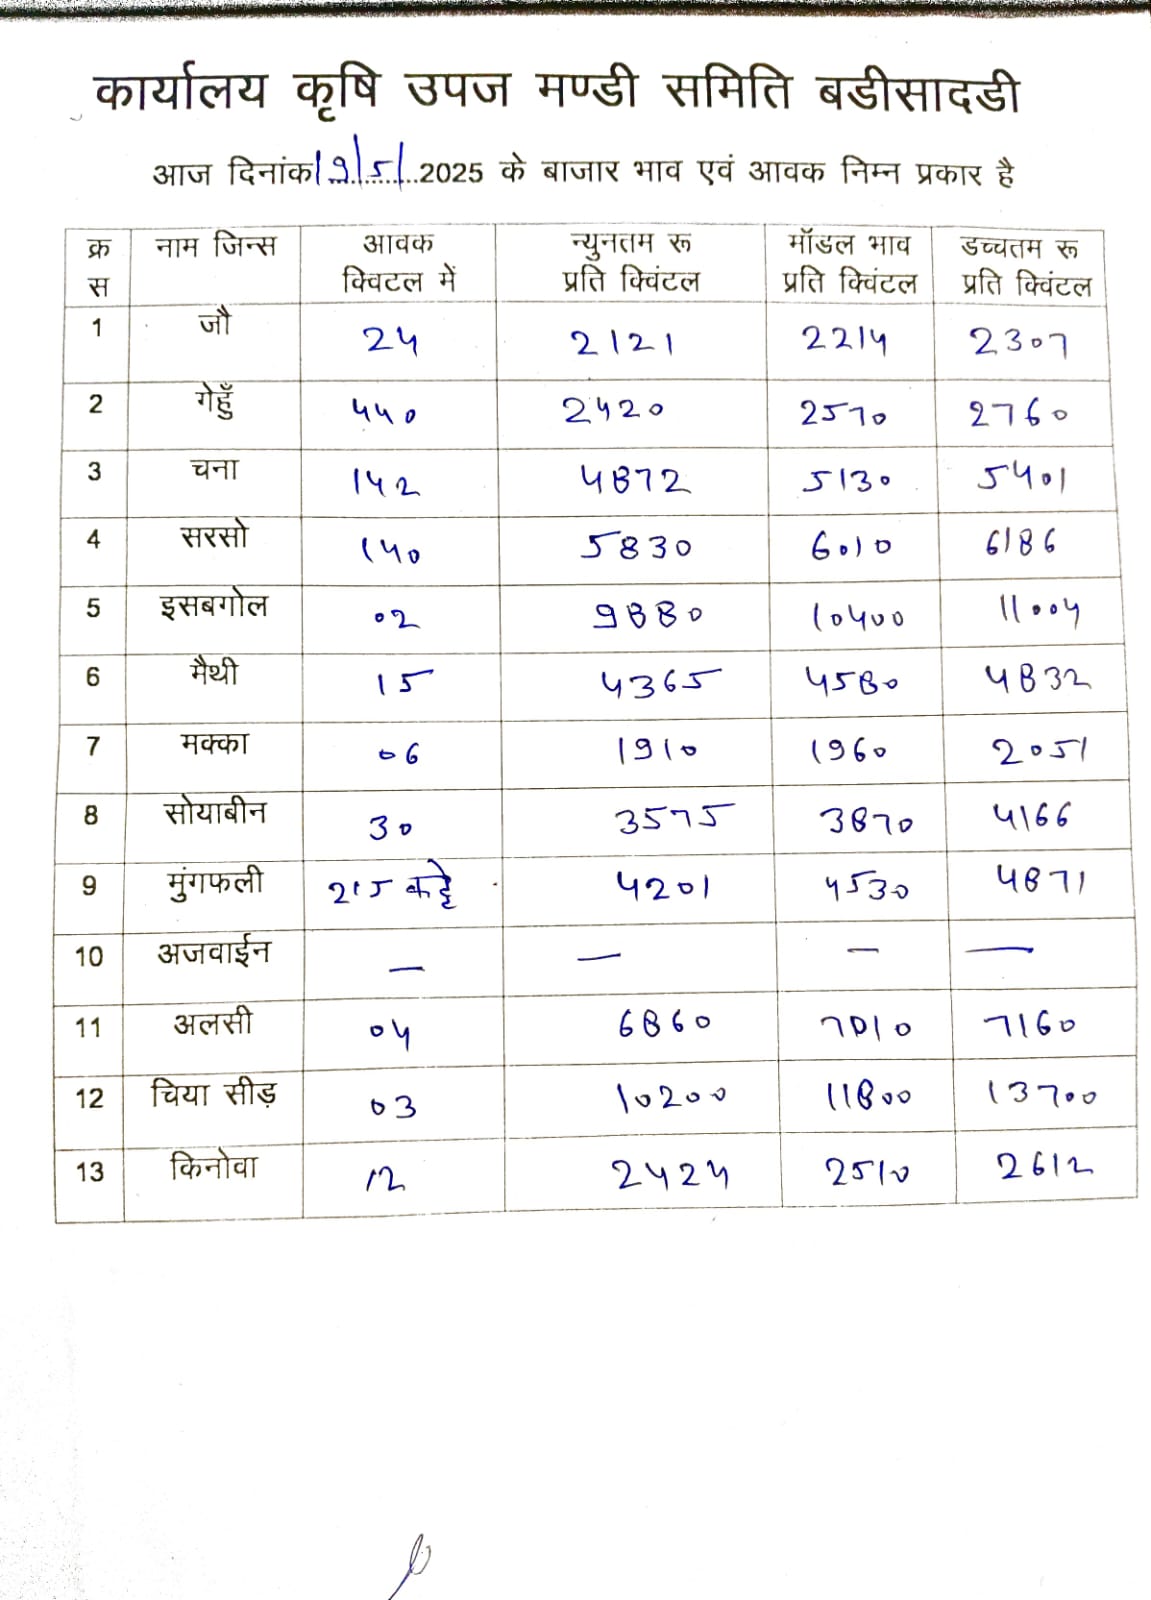 कार्यालय कृषि उपज मण्डी समिति बडीसादडी
आज दिनांक 19/5/2025 के बाजार भाव एवं आवक निम्न प्रकार है
क्र स नाम जिन्स आवक क्विटल में न्युनतम रू प्रति क्विंटल मॉडल भाव प्रति क्विंटल डच्चतम रू प्रति क्विंटल
1 जौ 24 2121 2214 2307
2 गेहुँ 440 2420 2570 2760
3 चना 142 4872 5130 5401
4 सरसो 140 5830 6010 6186
5 इसबगोल 02 9880 10400 11004
6 मैथी 15 4365 4580 4832
7 मक्का 06 1910 1960 2051
8 सोयाबीन 30 3575 3870 4166
9 मुंगफली 215 कट्टे 4201 4530 4871
10 अजवाईन — — — —
11 अलसी 04 6860 7010 7160
12 चिया सीड़ 03 10200 11800 13700
13 किनोवा 12 2424 2510 2612